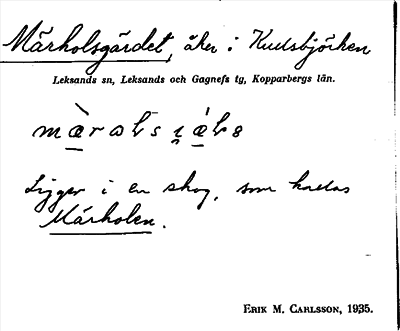 Märholsgärdet, åker i Kullsbjörken
Leksands sn, Leksands och Gagnefs tg, Kopparbergs län.
Ligger i en skog, som kallas
Märholen.
ERIK M. CARLSSON, 1935.